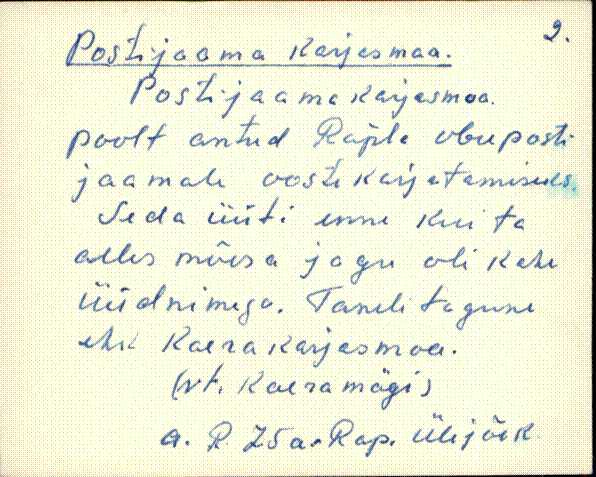 2.
Postijaama Karjasmaa.
Postijaama karjasmaa.
poolt antud Rapla obuposti
jaamale oosti karjatamiseks.
Seda üüti enne kui ta
alles mõesa jagu oli kahe
üüdnimega. Taneli tagune
ehk Kaera karjasmaa.
(vt. Kaera mägi)
a. R. 75 a. Rap. Ülijõe k.